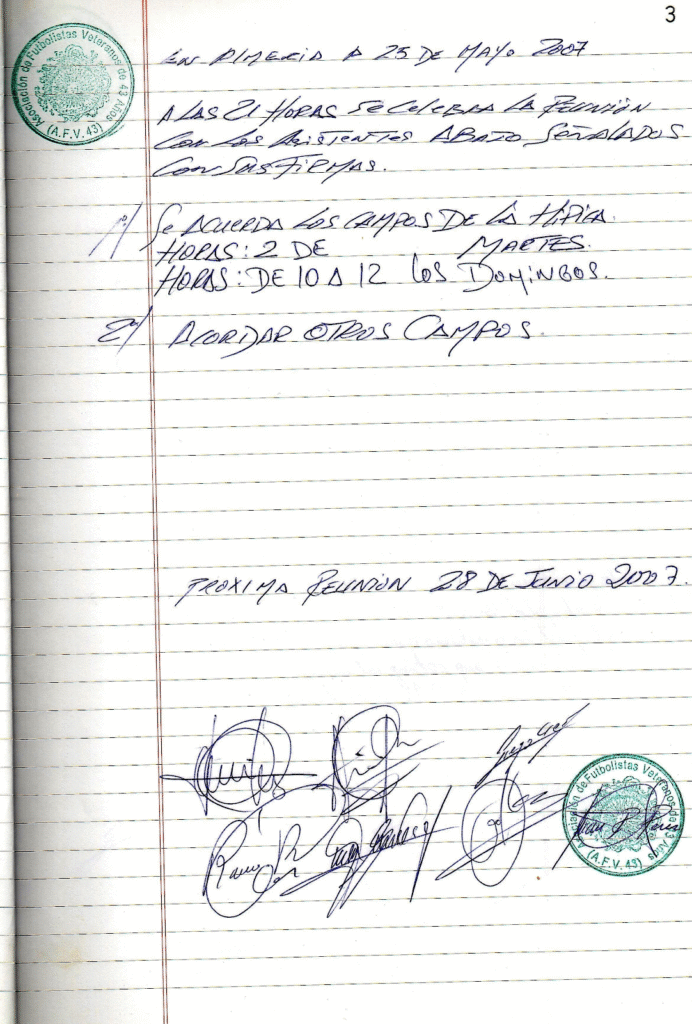 3
Asociación de Futbolistas Veteranos de 43 Años
(A.F.V. 43)
EN ALMERIA A 25 DE MAYO 2007
A LAS 21 HORAS SE CELEBRA LA REUNIÓN
CON LOS ASISTENTES ABAJO SEÑALADOS
CON SUS FIRMAS.
1º/ SE ACUERDA LOS CAMPOS DE LA HIPICA.
HORAS: 2 DE MARTES.
HORAS: DE 10 A 12 LOS DOMINGOS.
2º/ ACORDAR OTROS CAMPOS.
PROXIMA REUNION 28 DE JUNIO 2007.
Asociación de Futbolistas Veteranos de 43 Años
(A.F.V. 43)